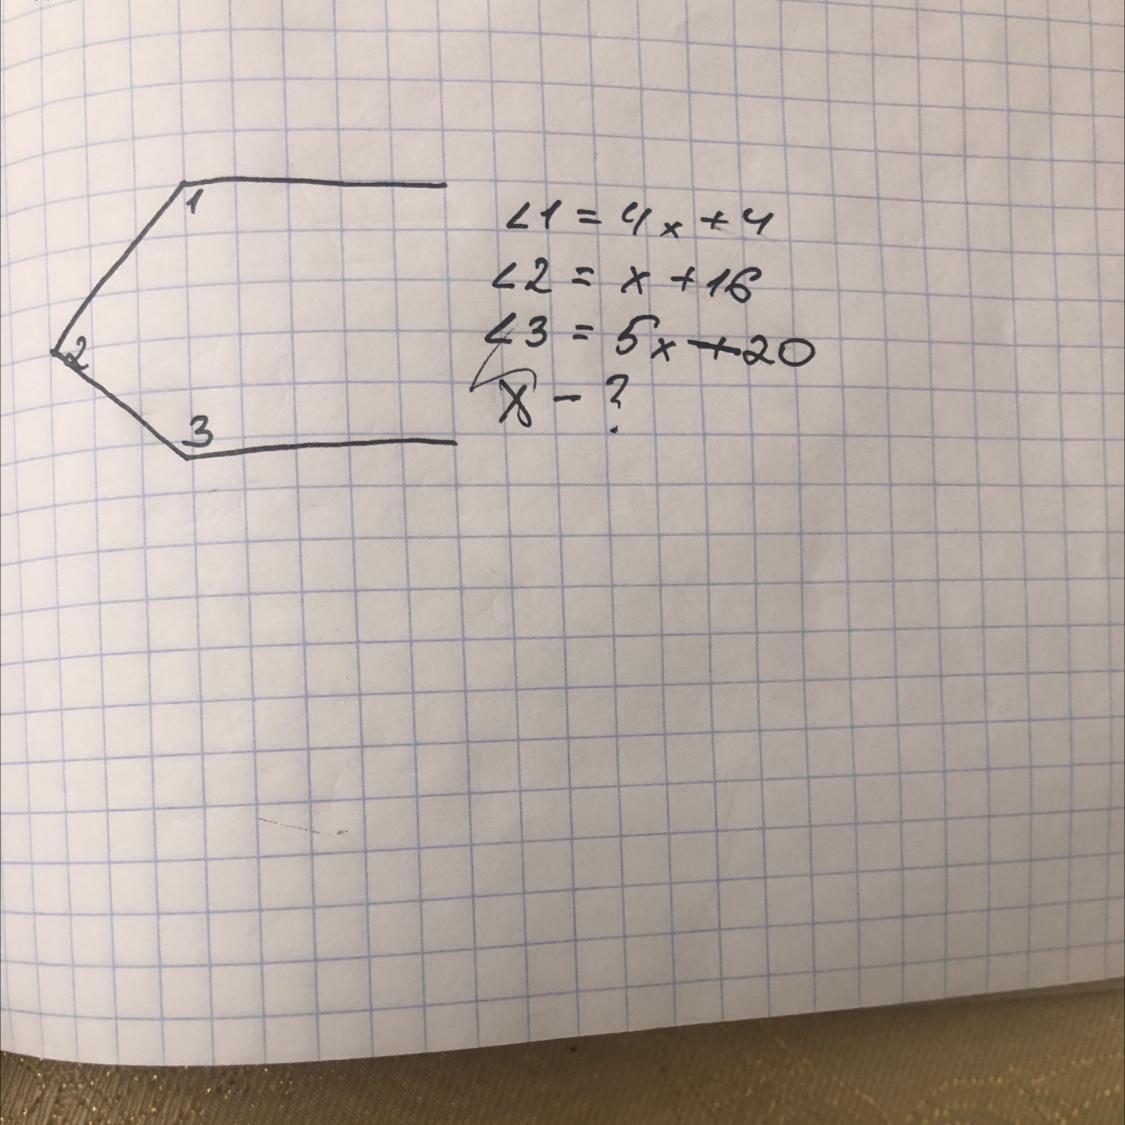 1
2
3
∠1 = 4x + 4
∠2 = x + 16
∠3 = 5x + 20
x - ?